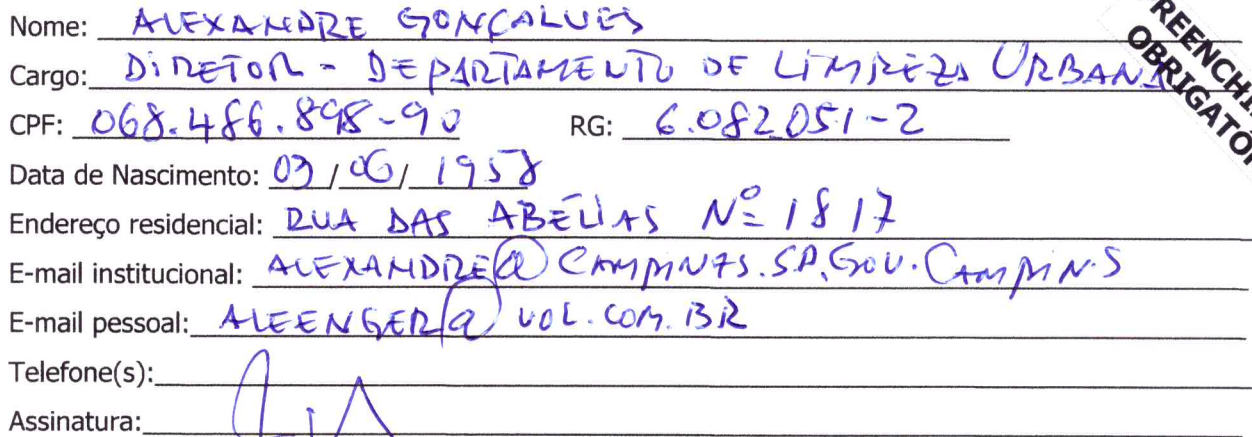 Nome: ALEXANDRE GONÇALVES
Cargo: DIRETOR - DEPARTAMENTO DE LIMPEZA URBANA
CPF: 068.486.898-90 RG: 6.082.051-2
Data de Nascimento: 03/06/1958
Endereço residencial: RUA DAS ABÉLIAS Nº 1817
E-mail institucional: ALEXANDRE@CAMPINAS.SP.GOV.CAMPINS
E-mail pessoal: ALEENGER@UOL.COM.BR
Telefone(s):
Assinatura: